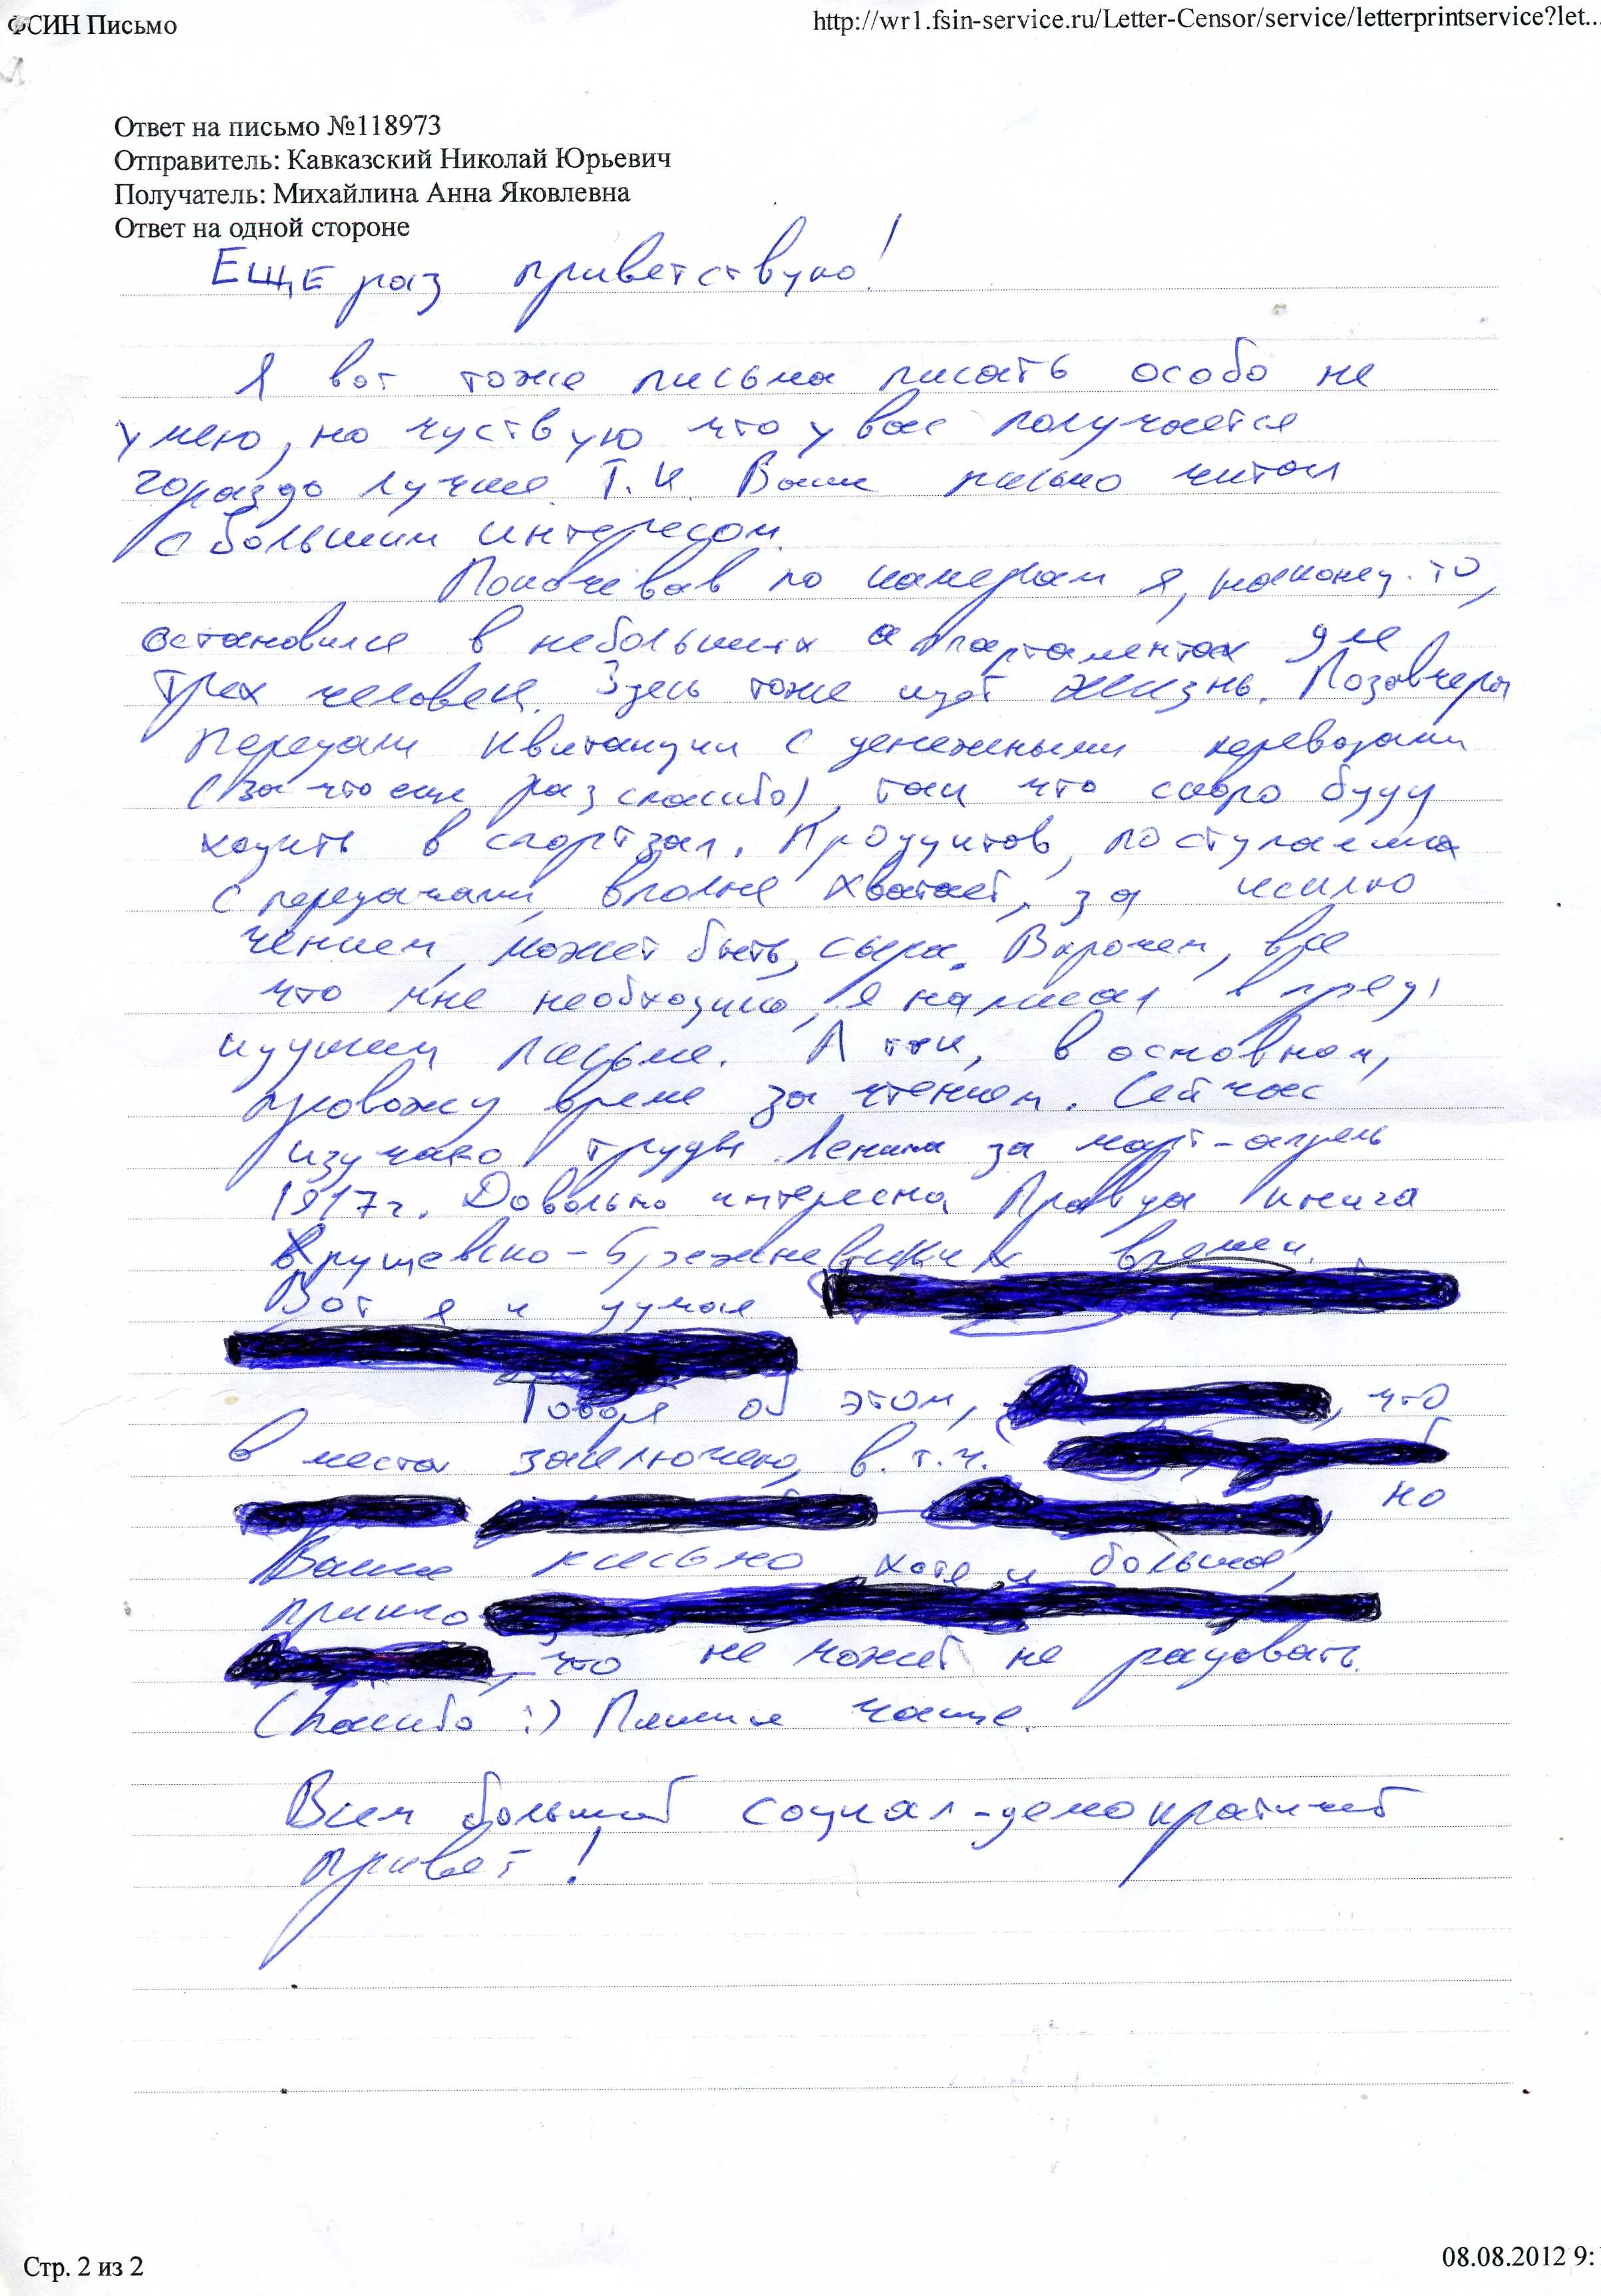 ФСИН Письмо
http://wr1.fsin-service.ru/Letter-Censor/service/letterprintservice?let...
Ответ на письмо №118973
Отправитель: Кавказский Николай Юрьевич
Получатель: Михайлина Анна Яковлевна
Ответ на одной стороне
Еще раз приветствую!
Я вот тоже письма писать особо не
умею, но чуствую что у вас получается
гораздо лучше. Т.к. Ваше письмо читал
с большим интересом.
Покочевав по камерам я, наконец-то,
остановился в небольших аппартаментах для
трех человек. Здесь тоже идет жизнь. Позавчера
передали квитанции с денежными переводами
(за что еще раз спасибо), так что скоро буду
ходить в спортзал. Продуктов, поступаемых
с передачами, вполне хватает, за исклю
чением, может быть, сыра. Впрочем, все
что мне необходимо, я написал в пред
идущем письме. А так, в основном,
провожу время за чтением. Сейчас
изучаю труды Ленина за март-апрель
1917г. Довольно интересно. Правда книга
хрущевско-брежневских времен.
Вот я и думаю
Говоря об этом, , что
в места заключею, в.т.ч.
, но
Ваше письмо хотя и большое,
пришло
, что не может не радовать.
Спасибо :) Пишите чаще.
Всем большой социал-демократичный
привет!
Стр. 2 из 2
08.08.2012 9: